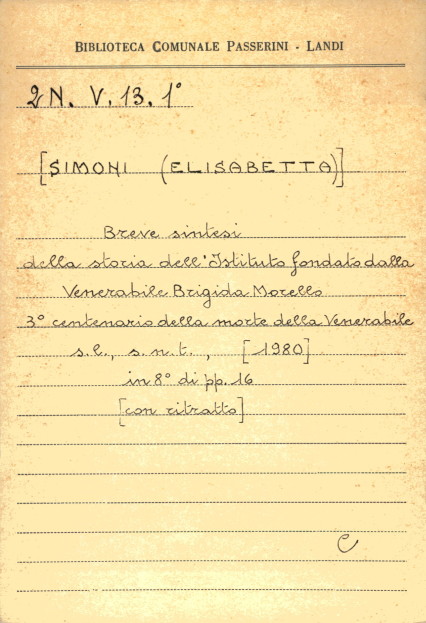 BIBLIOTECA COMUNALE PASSERINI - LANDI
2N. V. 13. 1°
[SIMONI (ELISABETTA)]
Breve sintesi
della storia dell'Istituto fondato dalla
Venerabile Brigida Morello
3° centenario della morte della Venerabile
s.l., s.n.t., [1980]
in 8° di pp. 16
[con ritratto]
C